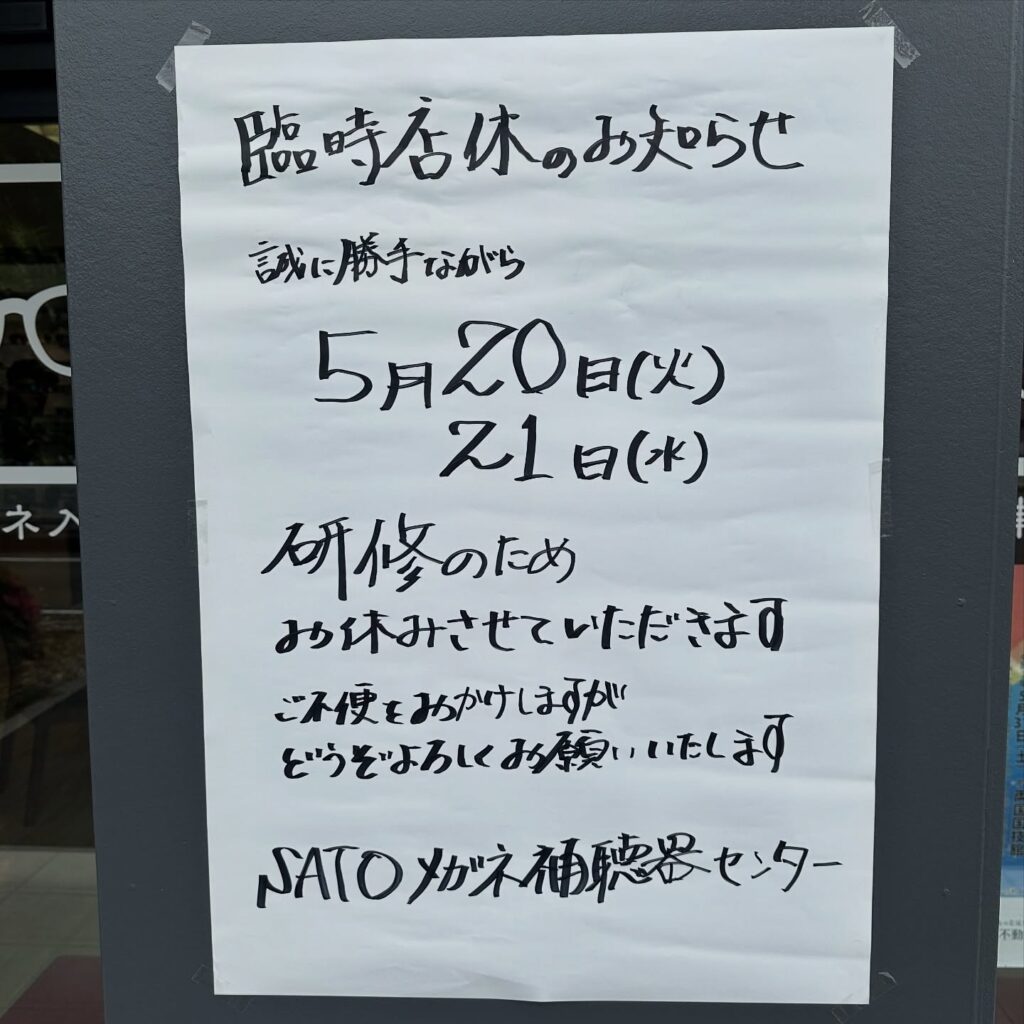 臨時店休のお知らせ
誠に勝手ながら
5月20日(火)
21日(水)
研修のため
お休みさせていただきます
ご不便をおかけしますが
どうぞよろしくお願いいたします
SATOメガネ補聴器センター
ネ入
不動